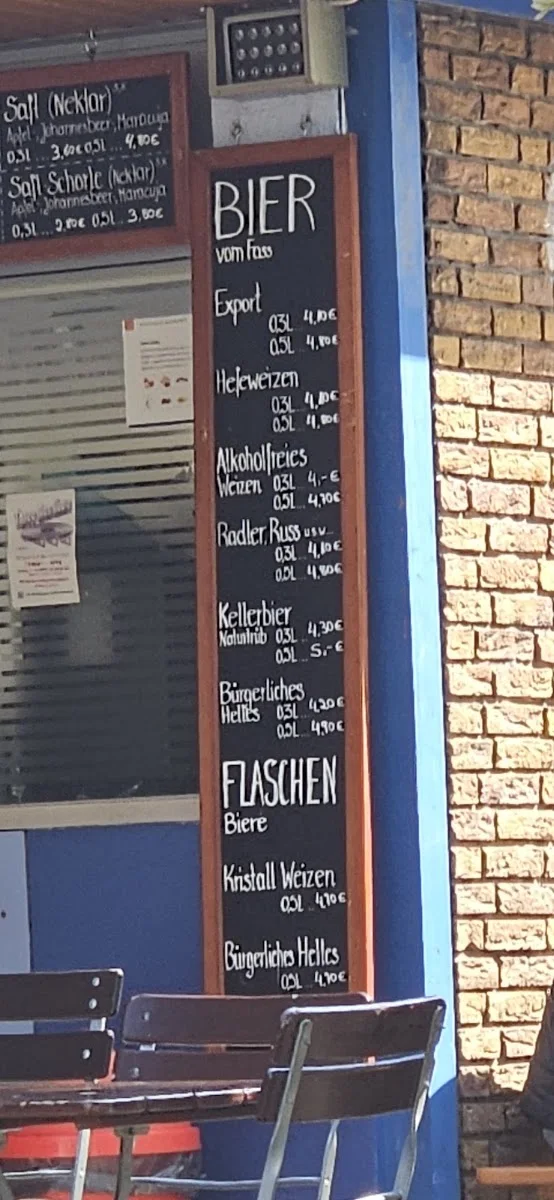 Saft (Nektar)
Apfel, Johannesbeer, Maracuja
0,3L ... 3,60€ 0,5L ... 4,80€
Saft Schorle (Nektar)
Apfel, Johannesbeer, Maracuja
0,3L ... 2,80€ 0,5L ... 3,80€
BIER
vom Fass
Export
0,3L 4,10€
0,5L 4,80€
Hefeweizen
0,3L 4,10€
0,5L 4,80€
Alkoholfreies
Weizen 0,3L 4,-€
0,5L 4,70€
Radler, Russ usw...
0,3L 4,10€
0,5L 4,80€
Kellerbier
Naturtrüb 0,3L 4,30€
0,5L 5,-€
Bürgerliches
Helles 0,3L 4,20€
0,5L 4,90€
FLASCHEN
Biere
Kristall Weizen
0,5L 4,70€
Bürgerliches Helles
0,5L 4,70€